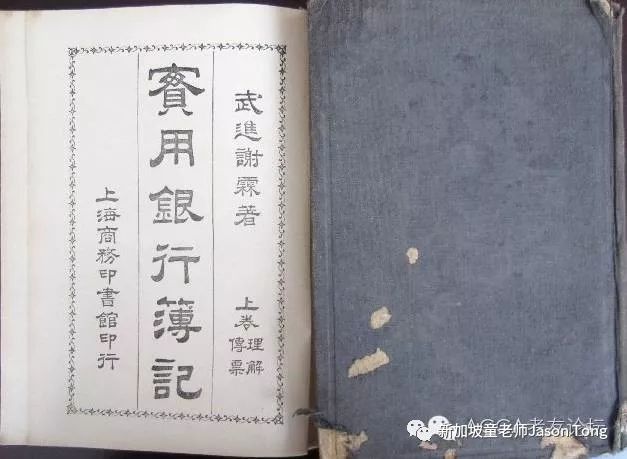 武進謝霖著
上卷 理解
傳票
實用銀行簿記
上海商務印書館印行
ACCA老友论坛
新加坡童老师Jason Tong